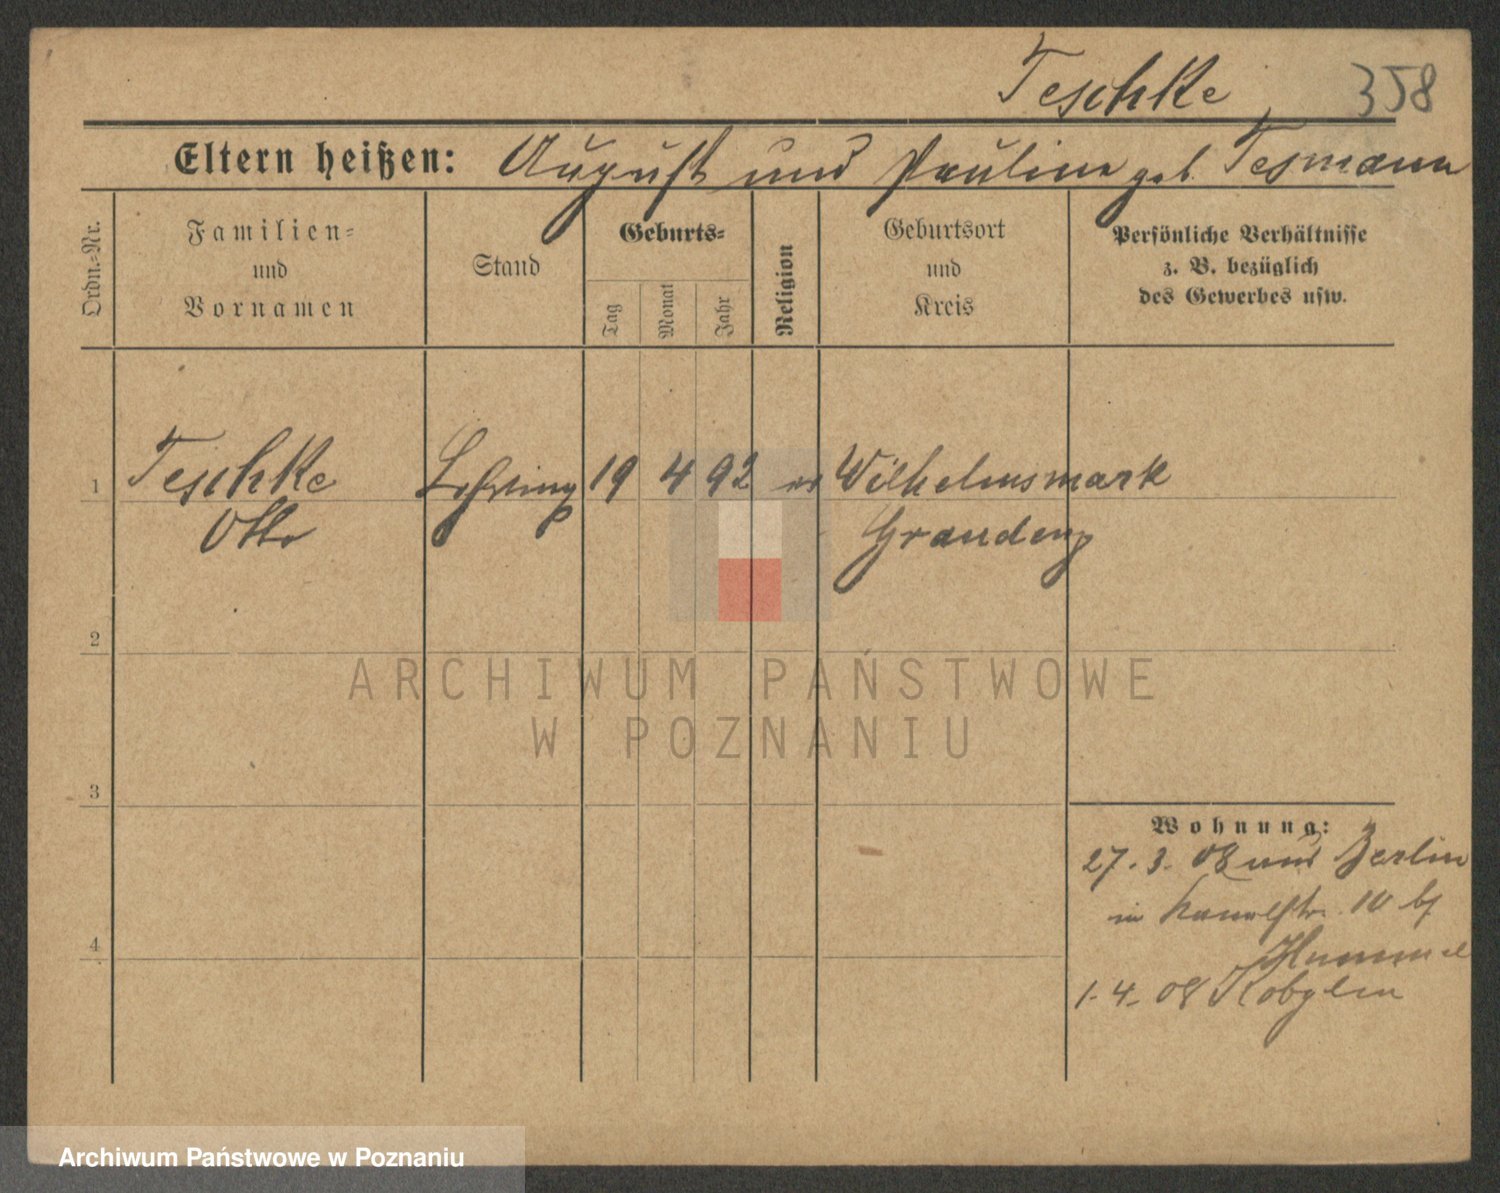 Teschke 358
Eltern heißen: August und Pauline geb. Tesmann
Ordn.=Nr.
Familien=
und
Vornamen
Stand
Geburts=
Tag
Monat
Jahr
Religion
Geburtsort
und
Kreis
Persönliche Verhältnisse
z. B. bezüglich
des Gewerbes usw.
1 Teschke Lehrling 19 4 92 ev Wilhelmsmark
Otto Graudenz
2
3
4
Wohnung:
27. 3. 08 aus Berlin
in Kanalstr. 10 bei
Hummel
1. 4. 08 Kobylin
ARCHIWUM PAŃSTWOWE
W POZNANIU
Archiwum Państwowe w Poznaniu